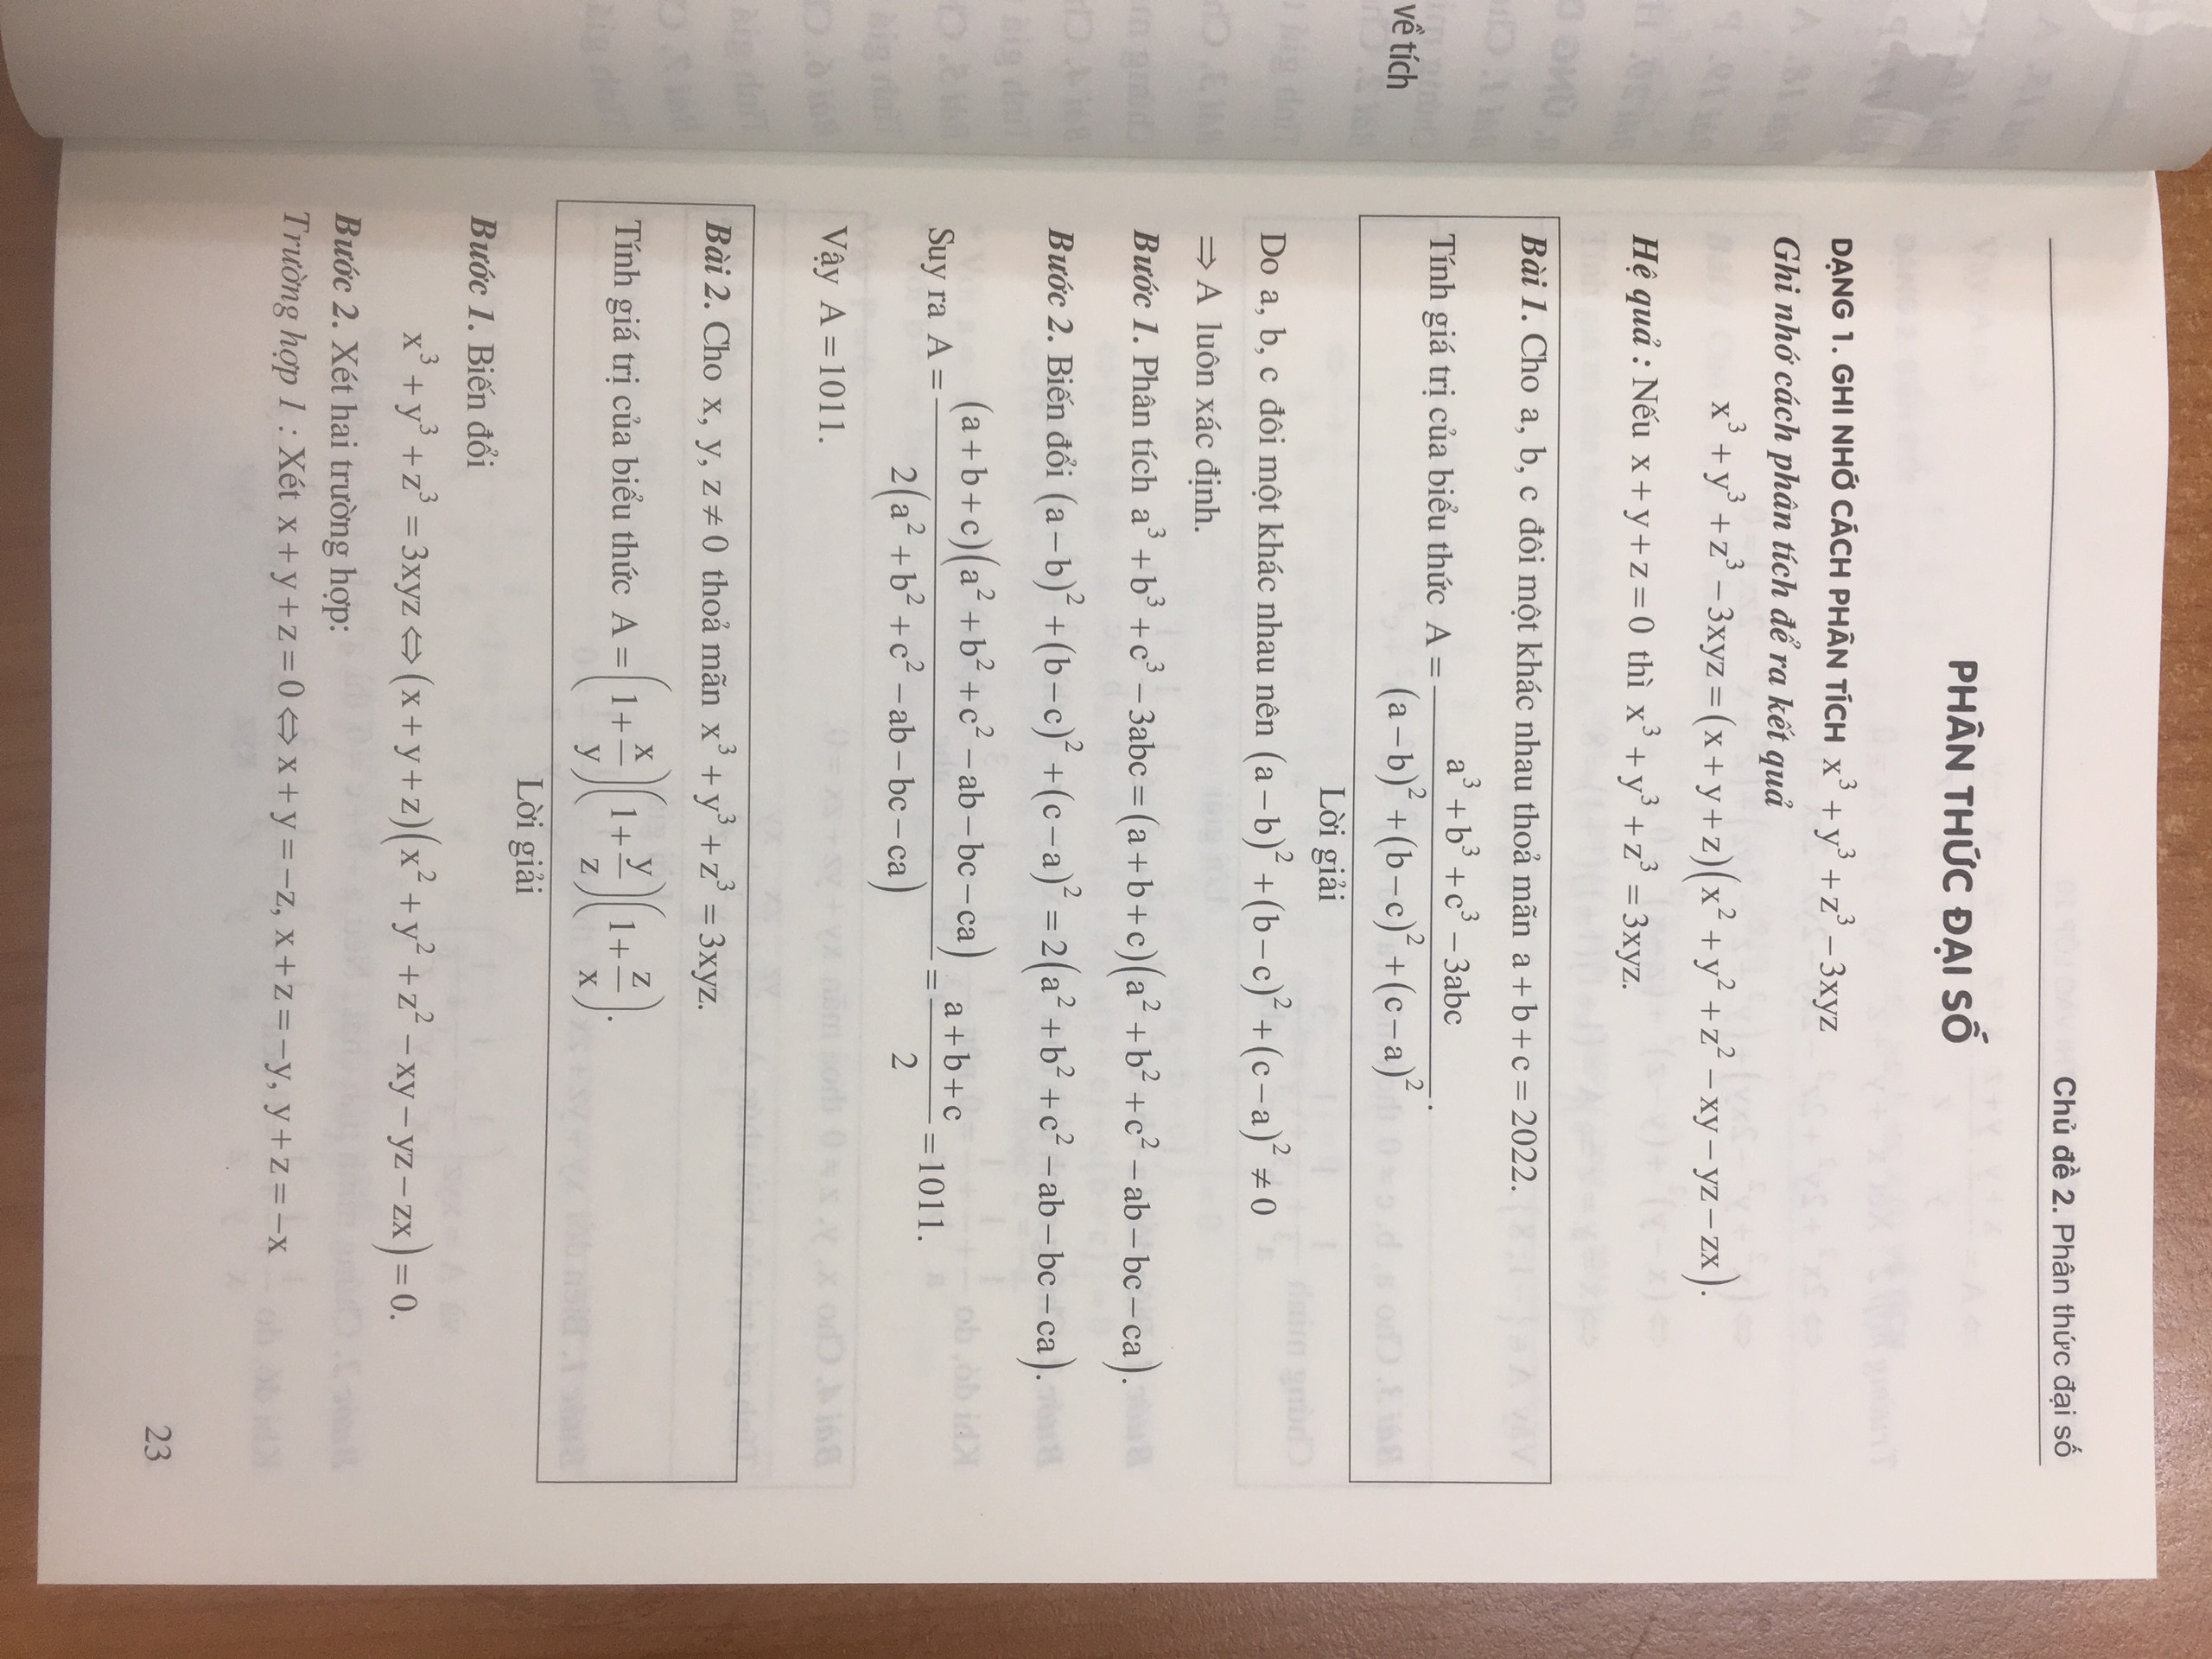 về tích
Chủ đề 2. Phân thức đại số
PHÂN THỨC ĐẠI SỐ
DẠNG 1. GHI NHỚ CÁCH PHÂN TÍCH x³ + y³ + z³ − 3xyz
Ghi nhớ cách phân tích để ra kết quả
x³ + y³ + z³ − 3xyz = (x + y + z)(x² + y² + z² − xy − yz − zx).
Hệ quả : Nếu x + y + z = 0 thì x³ + y³ + z³ = 3xyz.
Bài 1. Cho a, b, c đôi một khác nhau thoả mãn a + b + c = 2022.
Tính giá trị của biểu thức A = (a³ + b³ + c³ − 3abc)/((a − b)² + (b − c)² + (c − a)²).
Lời giải
Do a, b, c đôi một khác nhau nên (a − b)² + (b − c)² + (c − a)² ≠ 0
⇒ A luôn xác định.
Bước 1. Phân tích a³ + b³ + c³ − 3abc = (a + b + c)(a² + b² + c² − ab − bc − ca).
Bước 2. Biến đổi (a − b)² + (b − c)² + (c − a)² = 2(a² + b² + c² − ab − bc − ca).
Suy ra A = ((a + b + c)(a² + b² + c² − ab − bc − ca))/(2(a² + b² + c² − ab − bc − ca)) = (a + b + c)/2 = 1011.
Vậy A = 1011.
Bài 2. Cho x, y, z ≠ 0 thoả mãn x³ + y³ + z³ = 3xyz.
Tính giá trị của biểu thức A = (1 + x/y)(1 + y/z)(1 + z/x).
Lời giải
Bước 1. Biến đổi
x³ + y³ + z³ = 3xyz ⇔ (x + y + z)(x² + y² + z² − xy − yz − zx) = 0.
Bước 2. Xét hai trường hợp:
Trường hợp 1 : Xét x + y + z = 0 ⇔ x + y = −z, x + z = −y, y + z = −x
23